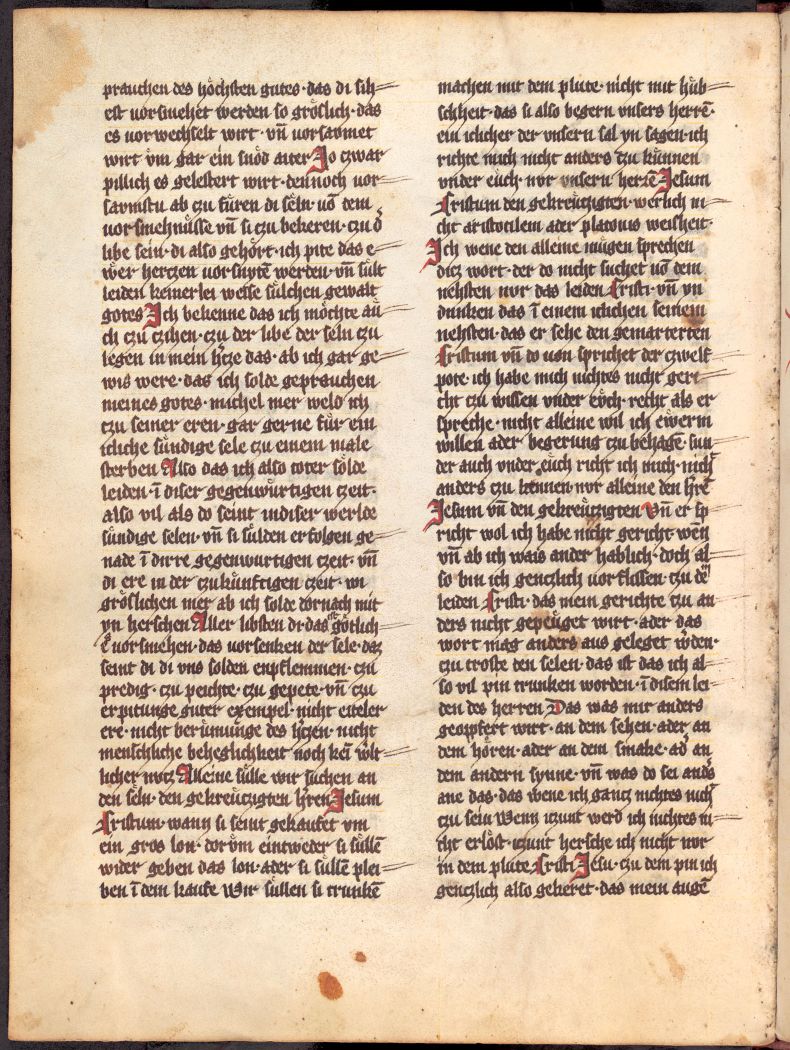 prauchen des höchsten gutes · das di sih-
est uorsmehet werden so gröslich · das
es uorwechselt wirt · vn̄ uorsavmet
wirt vm gar ein snöd aiter Jo czwar
pillich es gelestert wirt · dennoch uor-
savmstu ab czu füren di sëln · uō dem
uorsmehnüsse vn̄ si czu bekeren · czu d̄
libe sein · di also gehört · ich pite das e-
wer hertzen uorsnytē werden · vn̄ sült
leiden keinerlei weise sülchen gewalt
gotes Ich bekenne das ich möchte au-
ch czu czihen · czu der libe der seln czu
legen in mein h̄cze das · ab ich gar ge-
wis were · das ich solde geprauchen
meines gotes · michel mer weld ich
czu seiner eren · gar gerne für ein
icliche sündige sele czu einem male
sterben Also das ich also toter sölde
leiden · ī diser gegenwürtigen czeit ·
also vil als do seint indiser werlde
sündige selen · vn̄ si sülden erfolgen ge-
nade ī dirre gegenwurtigen czeit · vn̄
di ere in der czukünftigen czeit · wi
gröslichen mer ab ich solde dornach mit
yn herschen Aller libsten di · das götlich-
ē uorsmehen · das uorsenken der sele · daz
seint di di vns solden enpflemmen · czu
predig · czu peichte · czu gepete · vn̄ czu
erpitunge guter exempel · nicht eiteler
ere · nicht berümunge des h̄czen · nicht
menschliche beheglichkeit noch kei w̄lt-
licher nutz Alleine sülle wir suchen an
den sëln · den gekreuczigten h̄ren Jesum
Cristum · wann si seint gekaufet vm
ein gros lon · dorüm eintweder si süllē
wider geben das lon · ader si süllē plei-
ben ī dem kaufe Wir süllen si trunkē
machen mit dem plute · nicht mit hüb-
schheit · das si also begern vnsers herrē ·
ein iclicher der vnsern sal yn sagen · ich
richte mich nicht anders czu künnen
vnder euch · nor vnsern herrē Jesum
Cristum den gekreuczigten · werlich ni-
cht aristotilem ader platonis weisheit ·
Ich wene den alleine mügen sprechen
dicz wort · der do nicht suchet uō dem
nehsten nor das leiden Cristi · vn̄ yn
dunken das ī einem iclichen seinem
nehsten · das er sehe den gemarterten
Cristum vn̄ do uon sprichet der czwelf-
pote · ich habe mich nichtes nicht geri-
cht czu wissen vnder eych · recht als er
spreche · nicht alleine wil ich ewerm
willen ader begerung czu behagē · sun-
der auch vnder euch richt ich mich · nich
anders czu kennen · nor alleine den h̄re
Jesum vn̄ den gekreuczigten Vn̄ er sp-
richt wol ich habe nicht gericht wen̄
vn̄ ab ich wais ander hablich · doch al-
so bin ich genczlich uorflissen · czu de
leiden Cristi · das mein gerichte czu an-
ders nicht gepeuget wirt · ader das
wort mag anders aus geleget w̄den ·
czu troste den selen · das ist das ich al-
so vil pin trunken worden · ī disem lei-
den des herren Das was mir anders
geopfert wirt · an dem sehen · ader an
dem hören · ader an dem smake · ad̄ an
dem andern synne · vn̄ was do sei and̄s
ane das · das wene ich gancz nichtes nich
czu sein Wenn iczunt werd ich nichtes ni-
cht erlöst · iczunt hersche ich nicht nor
in dem plute Cristi Jesu · czu dem pin ich
genczlich also gekeret · das mein augē